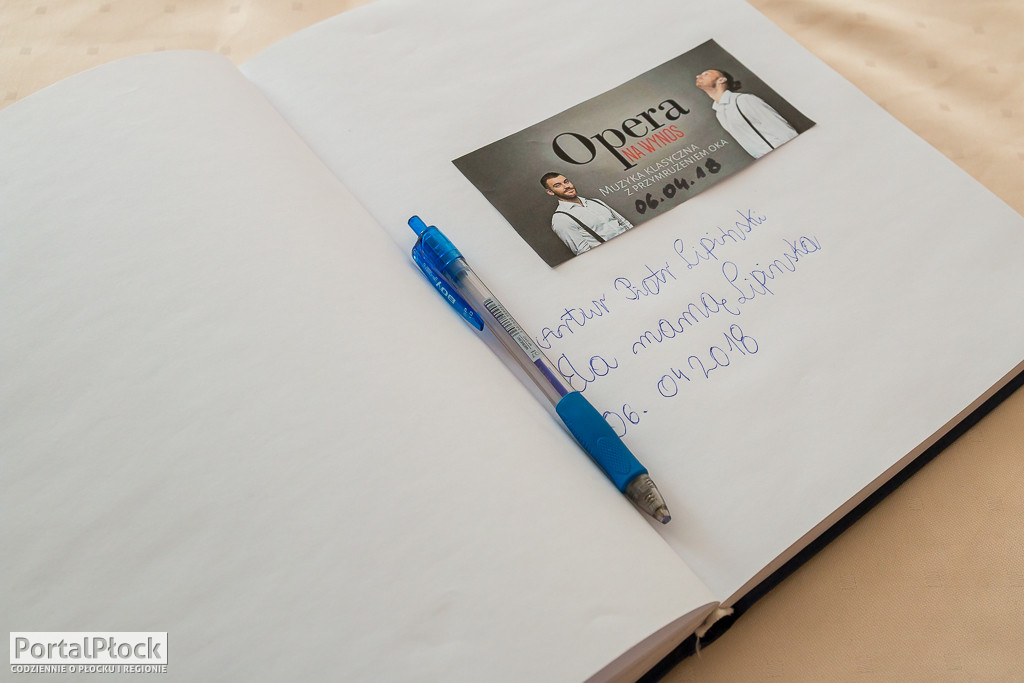 Opera
NA WYNOS
MUZYKA KLASYCZNA
Z PRZYMRUŻENIEM OKA
06.04.18
Artur Piotr Lipiński
Ela mamą Lipińska
06. 04 2018
BOY
PortalPłock
CODZIENNIE O PŁOCKU I REGIONIE